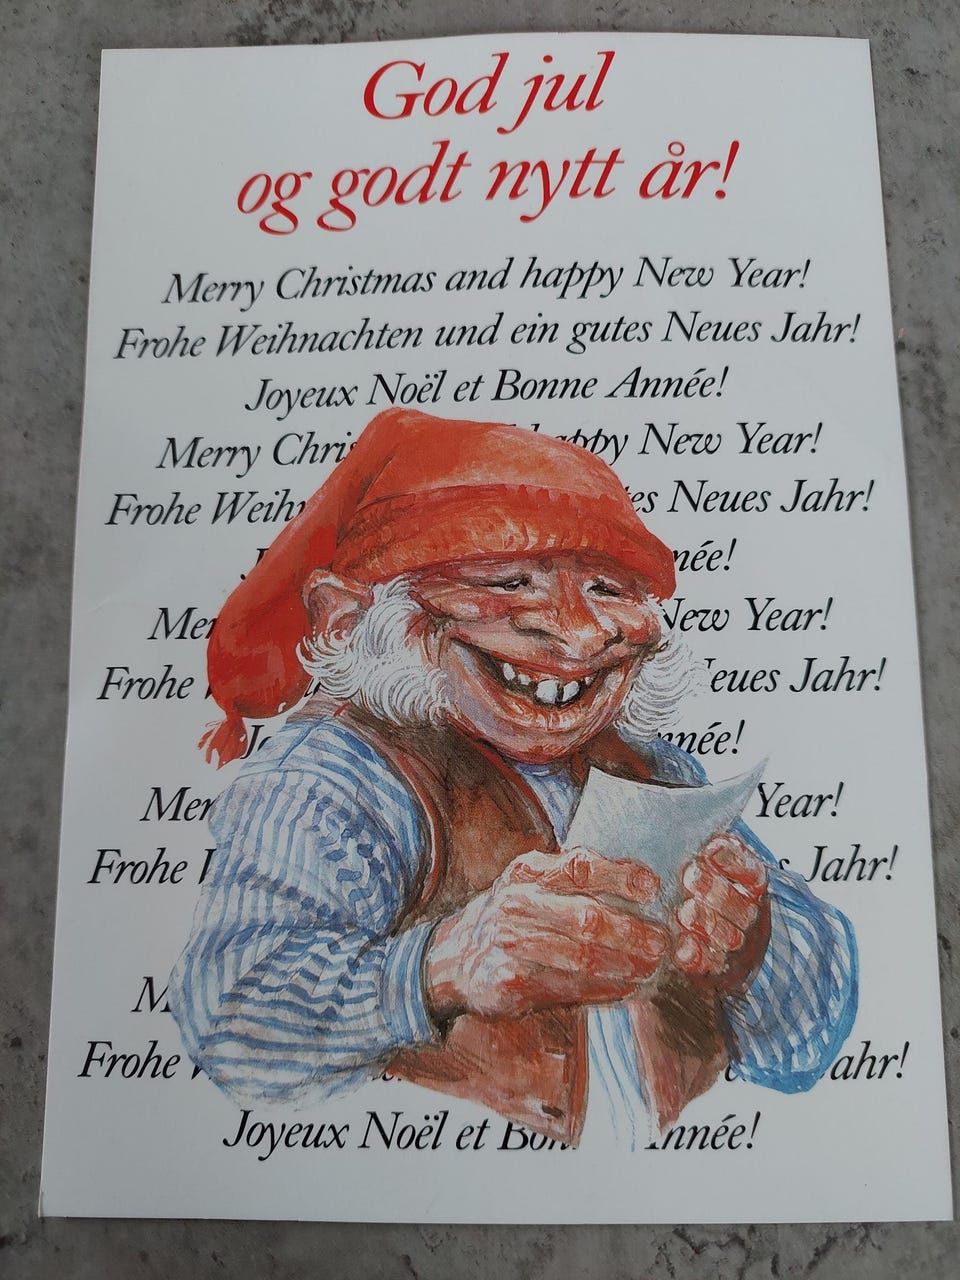 God jul
og godt nytt år!
Merry Christmas and happy New Year!
Frohe Weihnachten und ein gutes Neues Jahr!
Joyeux Noël et Bonne Année!
Merry happy New Year!
Frohe Neues Jahr!
New Year!
Frohe Jahr!
Year!
Frohe Jahr!
Frohe
Joyeux Noël et